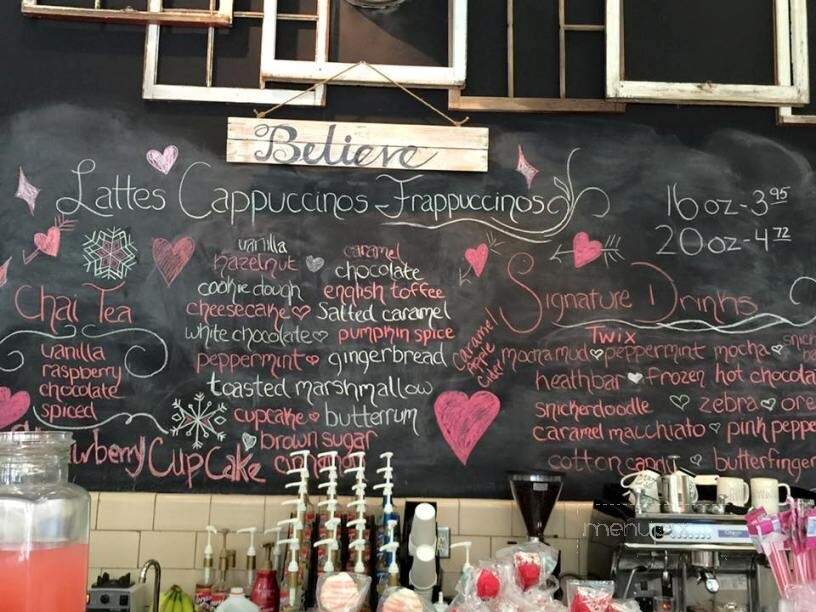 Believe
Lattes Cappuccinos - Frappuccinos
16oz-3.95
20oz-4.72
vanilla caramel
hazelnut chocolate
cookie dough english toffee
cheesecake Salted caramel
white chocolate pumpkin spice
peppermint gingerbread
toasted marshmallow
cupcake butterrum
brown sugar
Chai Tea
vanilla
raspberry
chocolate
spiced
Cupcake
Signature Drinks
Caramel
Apple
Cider
Twix
mocha mud peppermint mocha
heathbar frozen hot chocola
snickerdoodle zebra ore
caramel macchiato pink peppe
butterfinger
menupix